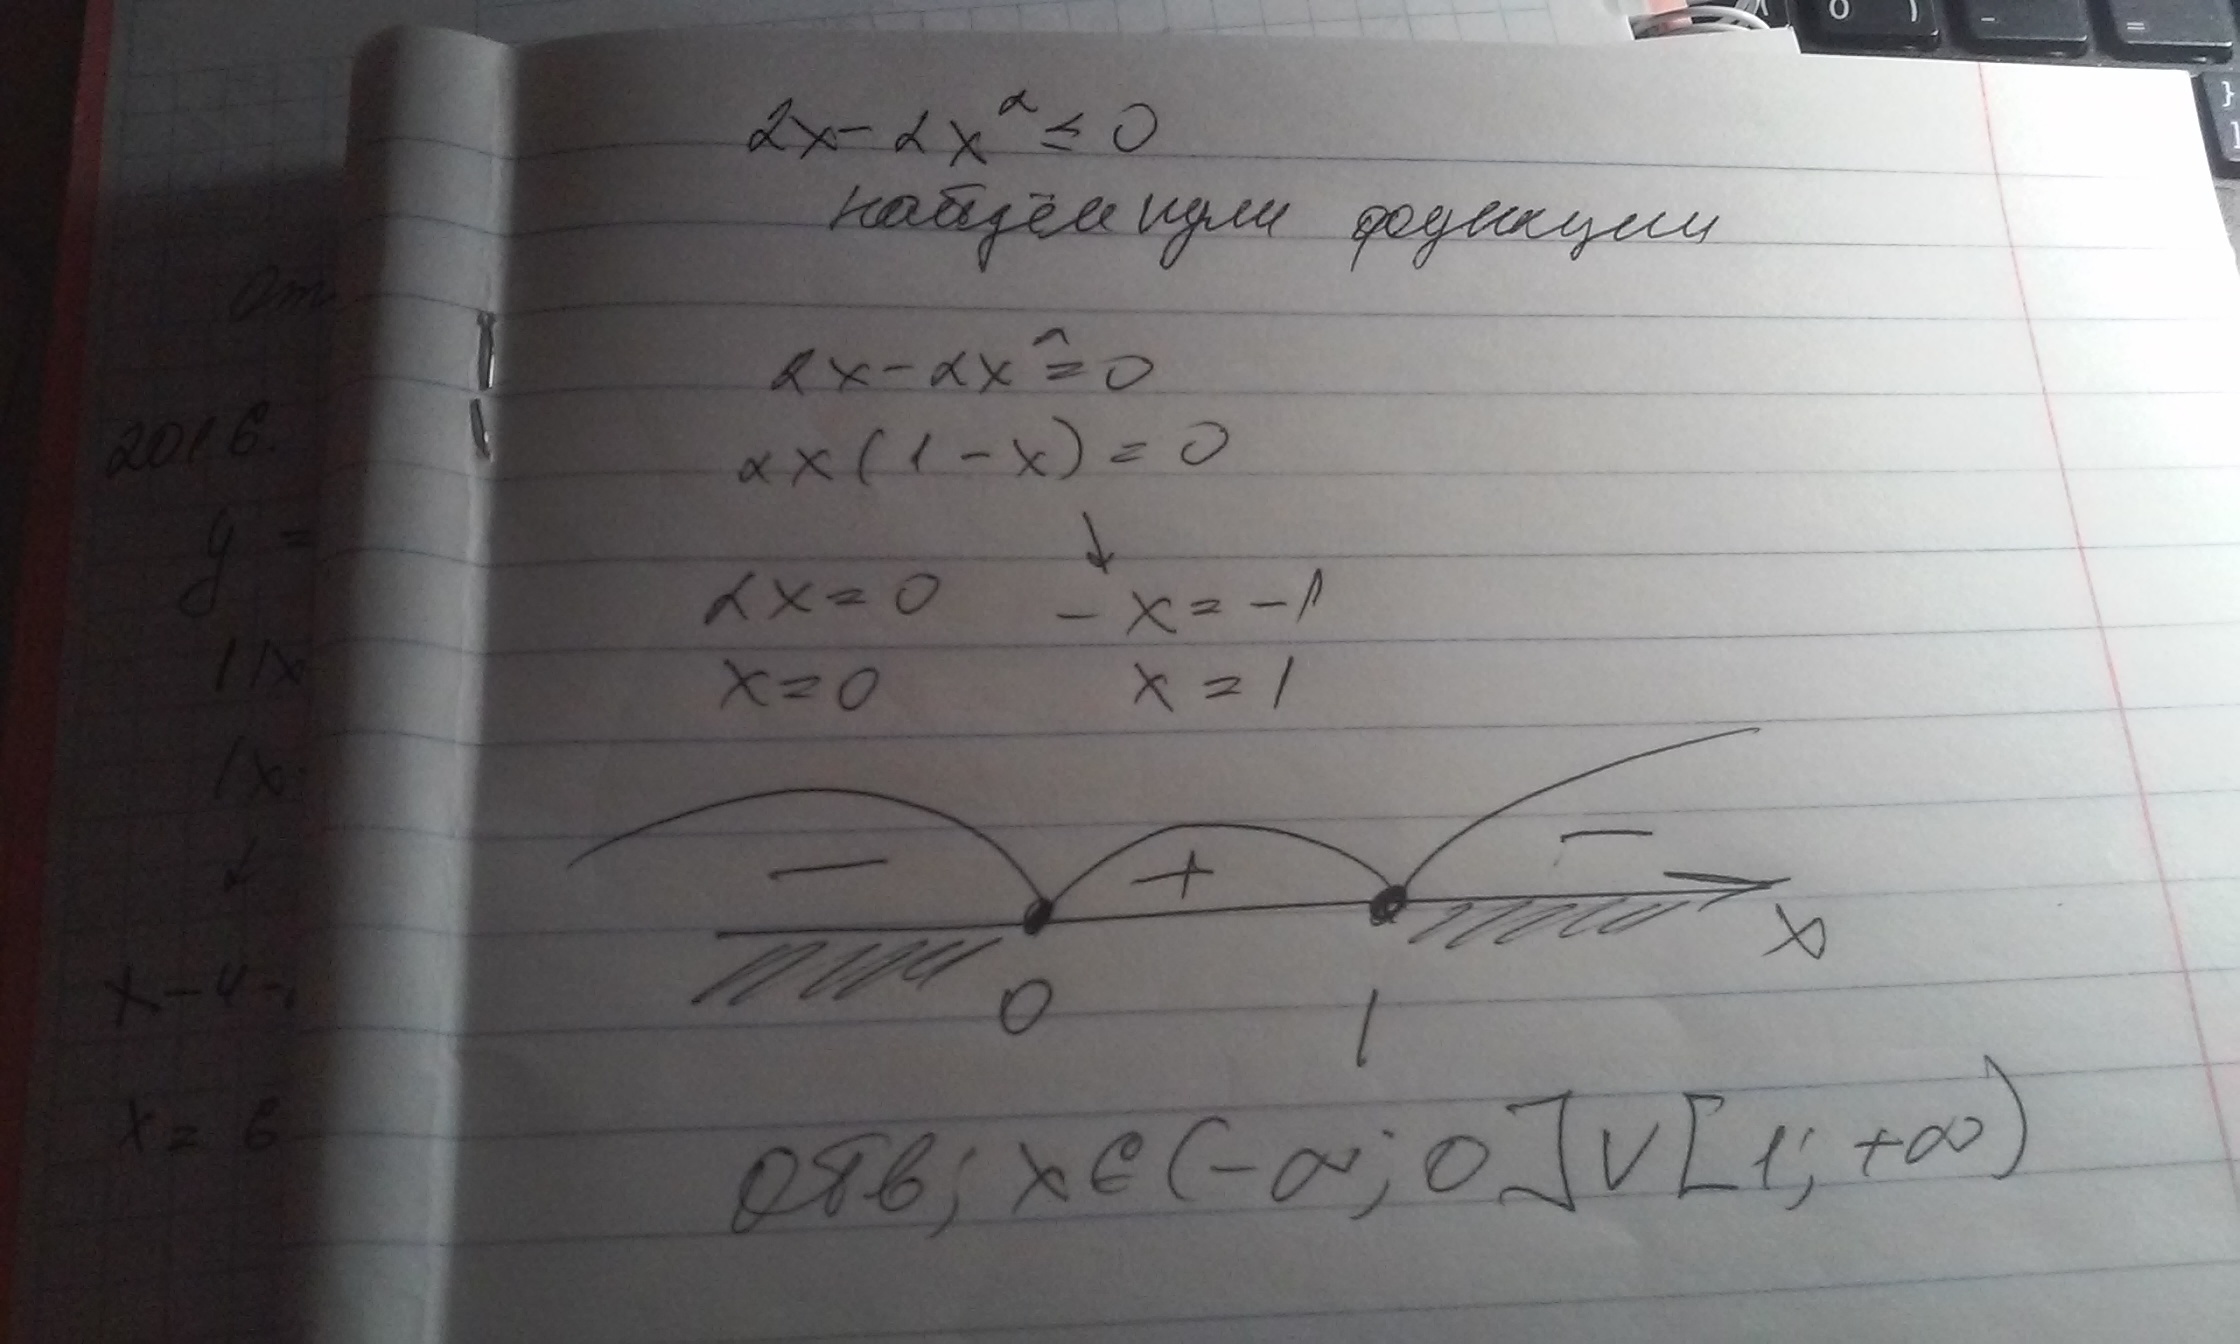 2x - 2x² ≤ 0
найдём нули функции
2x - 2x² = 0
2x(1 - x) = 0
↓
2x = 0 - x = -1
x = 0 x = 1
— + —
x
0 1
отв; x ∈ (-∞; 0] ∨ [1; +∞)
2016.
y =
11x
1x
x - 4 -
x = 6